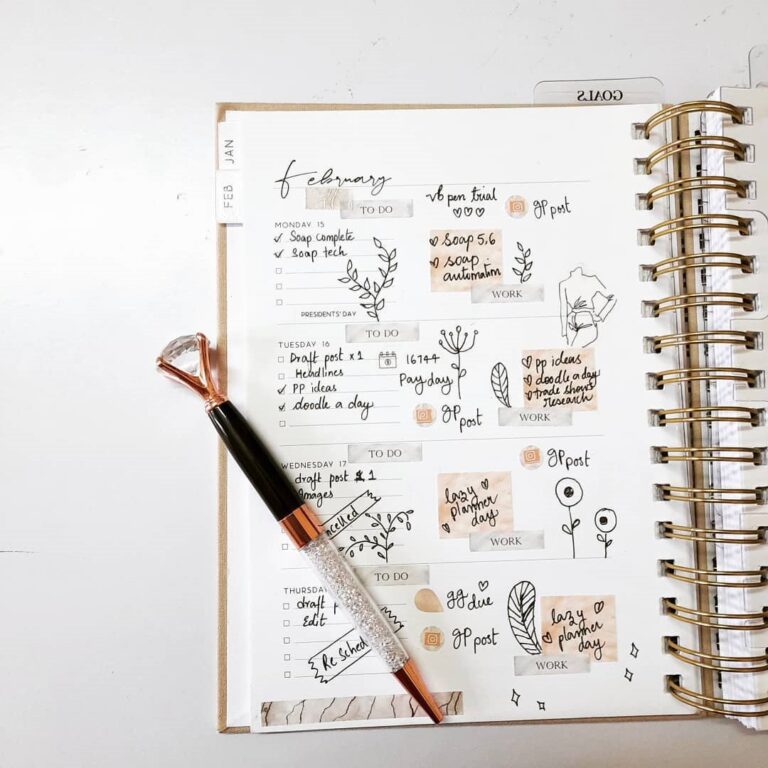 GOALS
JAN
FEB
February
TO DO
vb pen trial
gp post
MONDAY 15
Soap complete
Soap tech
Soap 5,6
soap automation
WORK
PRESIDENTS' DAY
TO DO
TUESDAY 16
Draft post x 1
Headlines
PP ideas
doodle a day
16744
Pay day
gp post
pp ideas
doodle a day
trade shows
research
WORK
TO DO
WEDNESDAY 17
draft post 1
Images
gp post
lazy
planner
day
WORK
TO DO
THURSDAY
draft
Edit
gg due
gp post
lazy
planner
day
WORK